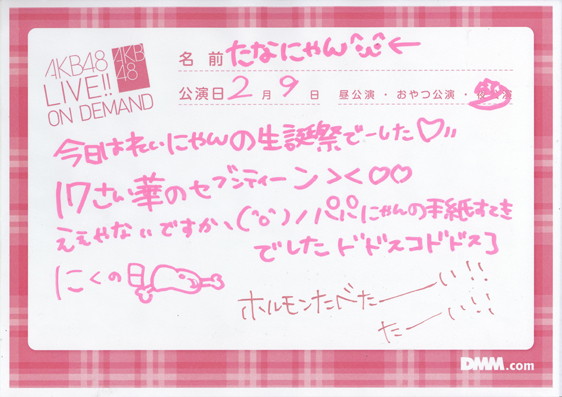 AKB48
LIVE!!
ON DEMAND
AKB
48
名前 たなにゃん ←
公演日 2月 9日 昼公演・おやつ公演・夜公演
今日はれいにゃんの生誕祭でーした♡!!
17さい華のセブンティーン><♡♡
ええやないですか、(°o°)ノパパにゃんの手紙すてき
でしたドドスコドドスコ
にくの日
ホルモンたべたーーい!!
たーーい!!
DMM.com